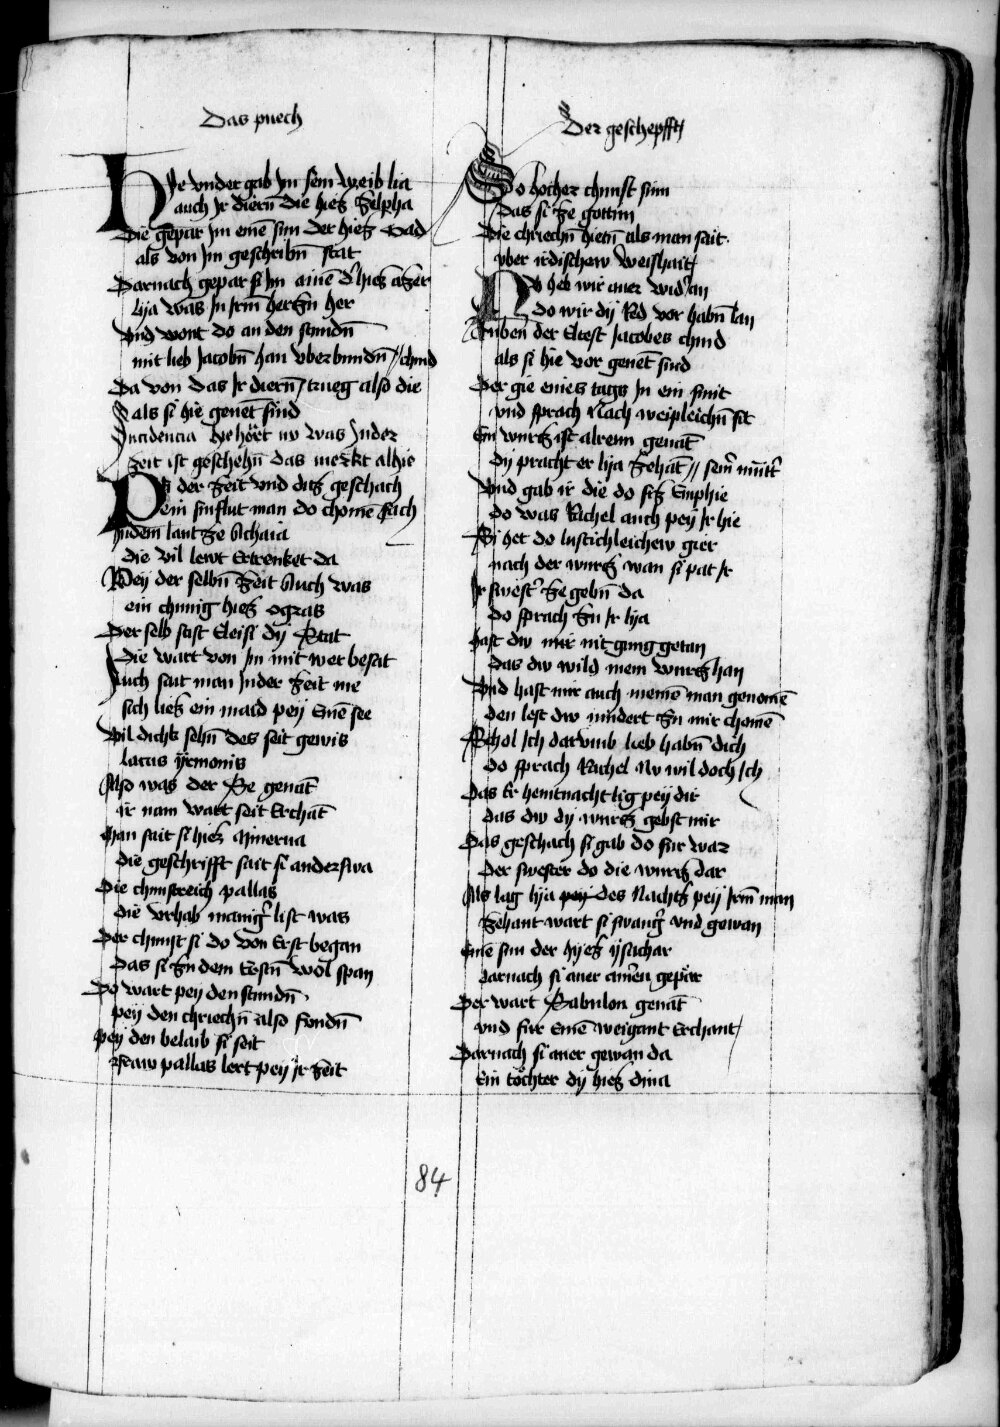 Das puech
Hye vnder gab Im sein weib lia
auch Ir diern die hieß Zelpha
Die gepar Im eine sun der hieß Gad
als von Im geschribn stat
Darnach gepar si Im aine der hies aser
lya was In Irm herczn her
Vnd wont do an den stundn
mit lieb Jacobn han vberbundn // chind
Da von das Ir diern trueg also die
als si hie genet sind
Incidencia Nw hört nv was Inder
zeit ist geschehn das merkt alhie
Pey der zeit vnd ditz geschach
ein sinflut man do chome sach
Indem lant ze Achaia
die vil lewt Ertrenket da
Pey der selbn zeit Auch was
ein chunig hieß ogras
Der selb stift Eleisi dy Stat
Die wart von Im mit wer besat
Auch sait man Inder zeit me
sich ließ ein maid pey Eine see
Vil dichk sehn des seit gewis
lacus yrmonis
Also was der Se genat
ir nam wart seit Erchat
Man sait si hieß Minerua
die geschrifft sait si anderswa
Die chunstreich pallas
die vrhab manigr list was
Der chunst si do von Erst began
Das si zu dem Erstn wol span
Do wart pey den stundn
pey den chriechn also fundn
pey den belaib si seit
fraw pallas lert pey ir zeit
Der geschepfft
So hocher chunst sinn
das si ze gottinn
Die chriechn hietn als man sait
vber irdischew weishait
Nv heb wir auer widr an
do wir dy Red vor habn lan
Ruben der Eltest Jacobes chind
als si hie vor genet sind
Der gie eines tags In ein snit
vnd sprach Nach weipleichn sit
Ein wurtz ist alrein genat
dy pracht er lya zehat // seinr mutr
Vnd gab ir die do sitz Emphie
do was Rachel auch pey Ir hie
Si het do lustichleichew gier
nach der wurtz wan si pat Ir
Ir swestr ze gebn da
do sprach zu Ir lya
hast dw mir nit gnug getan
das dw wild mein wurtz han
Vnd hast mir auch meine man genome
den lest dw nindert zu mir chome
Schol Ich darvmb lieb habn dich
do sprach Rachel Nv wil doch Ich
Das Er heint nacht lig pey dir
das dw dy wurtz gebst mir
Das geschach si gab do fur war
der swester do die wurtz dar
Als lag lya pey des Nachtz pey Irm man
zehant wart si swangr vnd gewan
Eine sun der hyeß ysachar
darnach si auer aine gepar
Der wart Sabulon genat
vnd fur Eine weigant Erchant
Darnach si auer gewan da
Ein tochter dy hieß dina
84